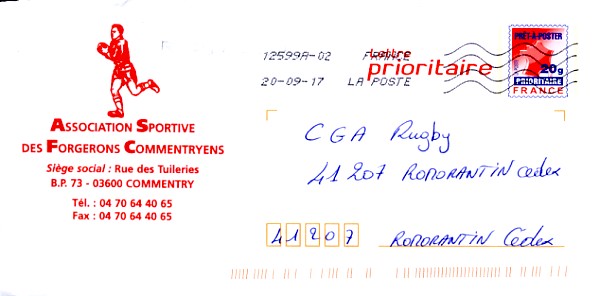 ASSOCIATION SPORTIVE
DES FORGERONS COMMENTRYENS
Siège social : Rue des Tuileries
B.P. 73 - 03600 COMMENTRY
Tél. : 04 70 64 40 65
Fax : 04 70 64 40 65
12599A-02 FRANCE
20-09-17 LA POSTE
Lettre
prioritaire
PRÊT-À-POSTER
20g
PRIORITAIRE
FRANCE
CGA Rugby
41207 ROMORANTIN Cedex
41207 ROMORANTIN Cedex